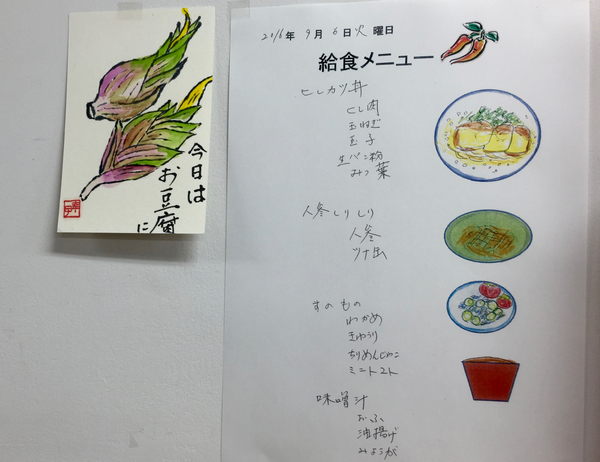 今日は
お豆腐
に
2016年 9月 6日 火曜日
給食メニュー
ヒレカツ丼
ヒレ肉
玉ねぎ
玉子
生パン粉
みつ葉
人参しりしり
人参
ツナ缶
すのもの
わかめ
きゅうり
ちりめんじゃこ
ミニトマト
味噌汁
おふ
油揚げ
みょうが